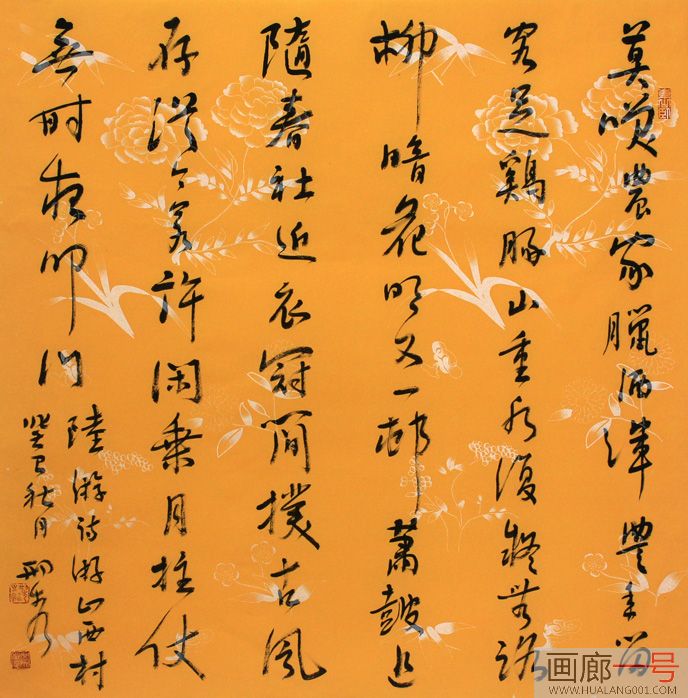 莫咲農家臘酒渾豐年留
客足鷄豚山重水復疑無路
柳暗花明又一邨蕭皷追
隨春社近衣冠簡撲古風
存從今若許閑乘月拄仗
無時夜叩門
陸游詩游山西村
癸巳秋月
画廊一号
WWW.HUALANG001.COM